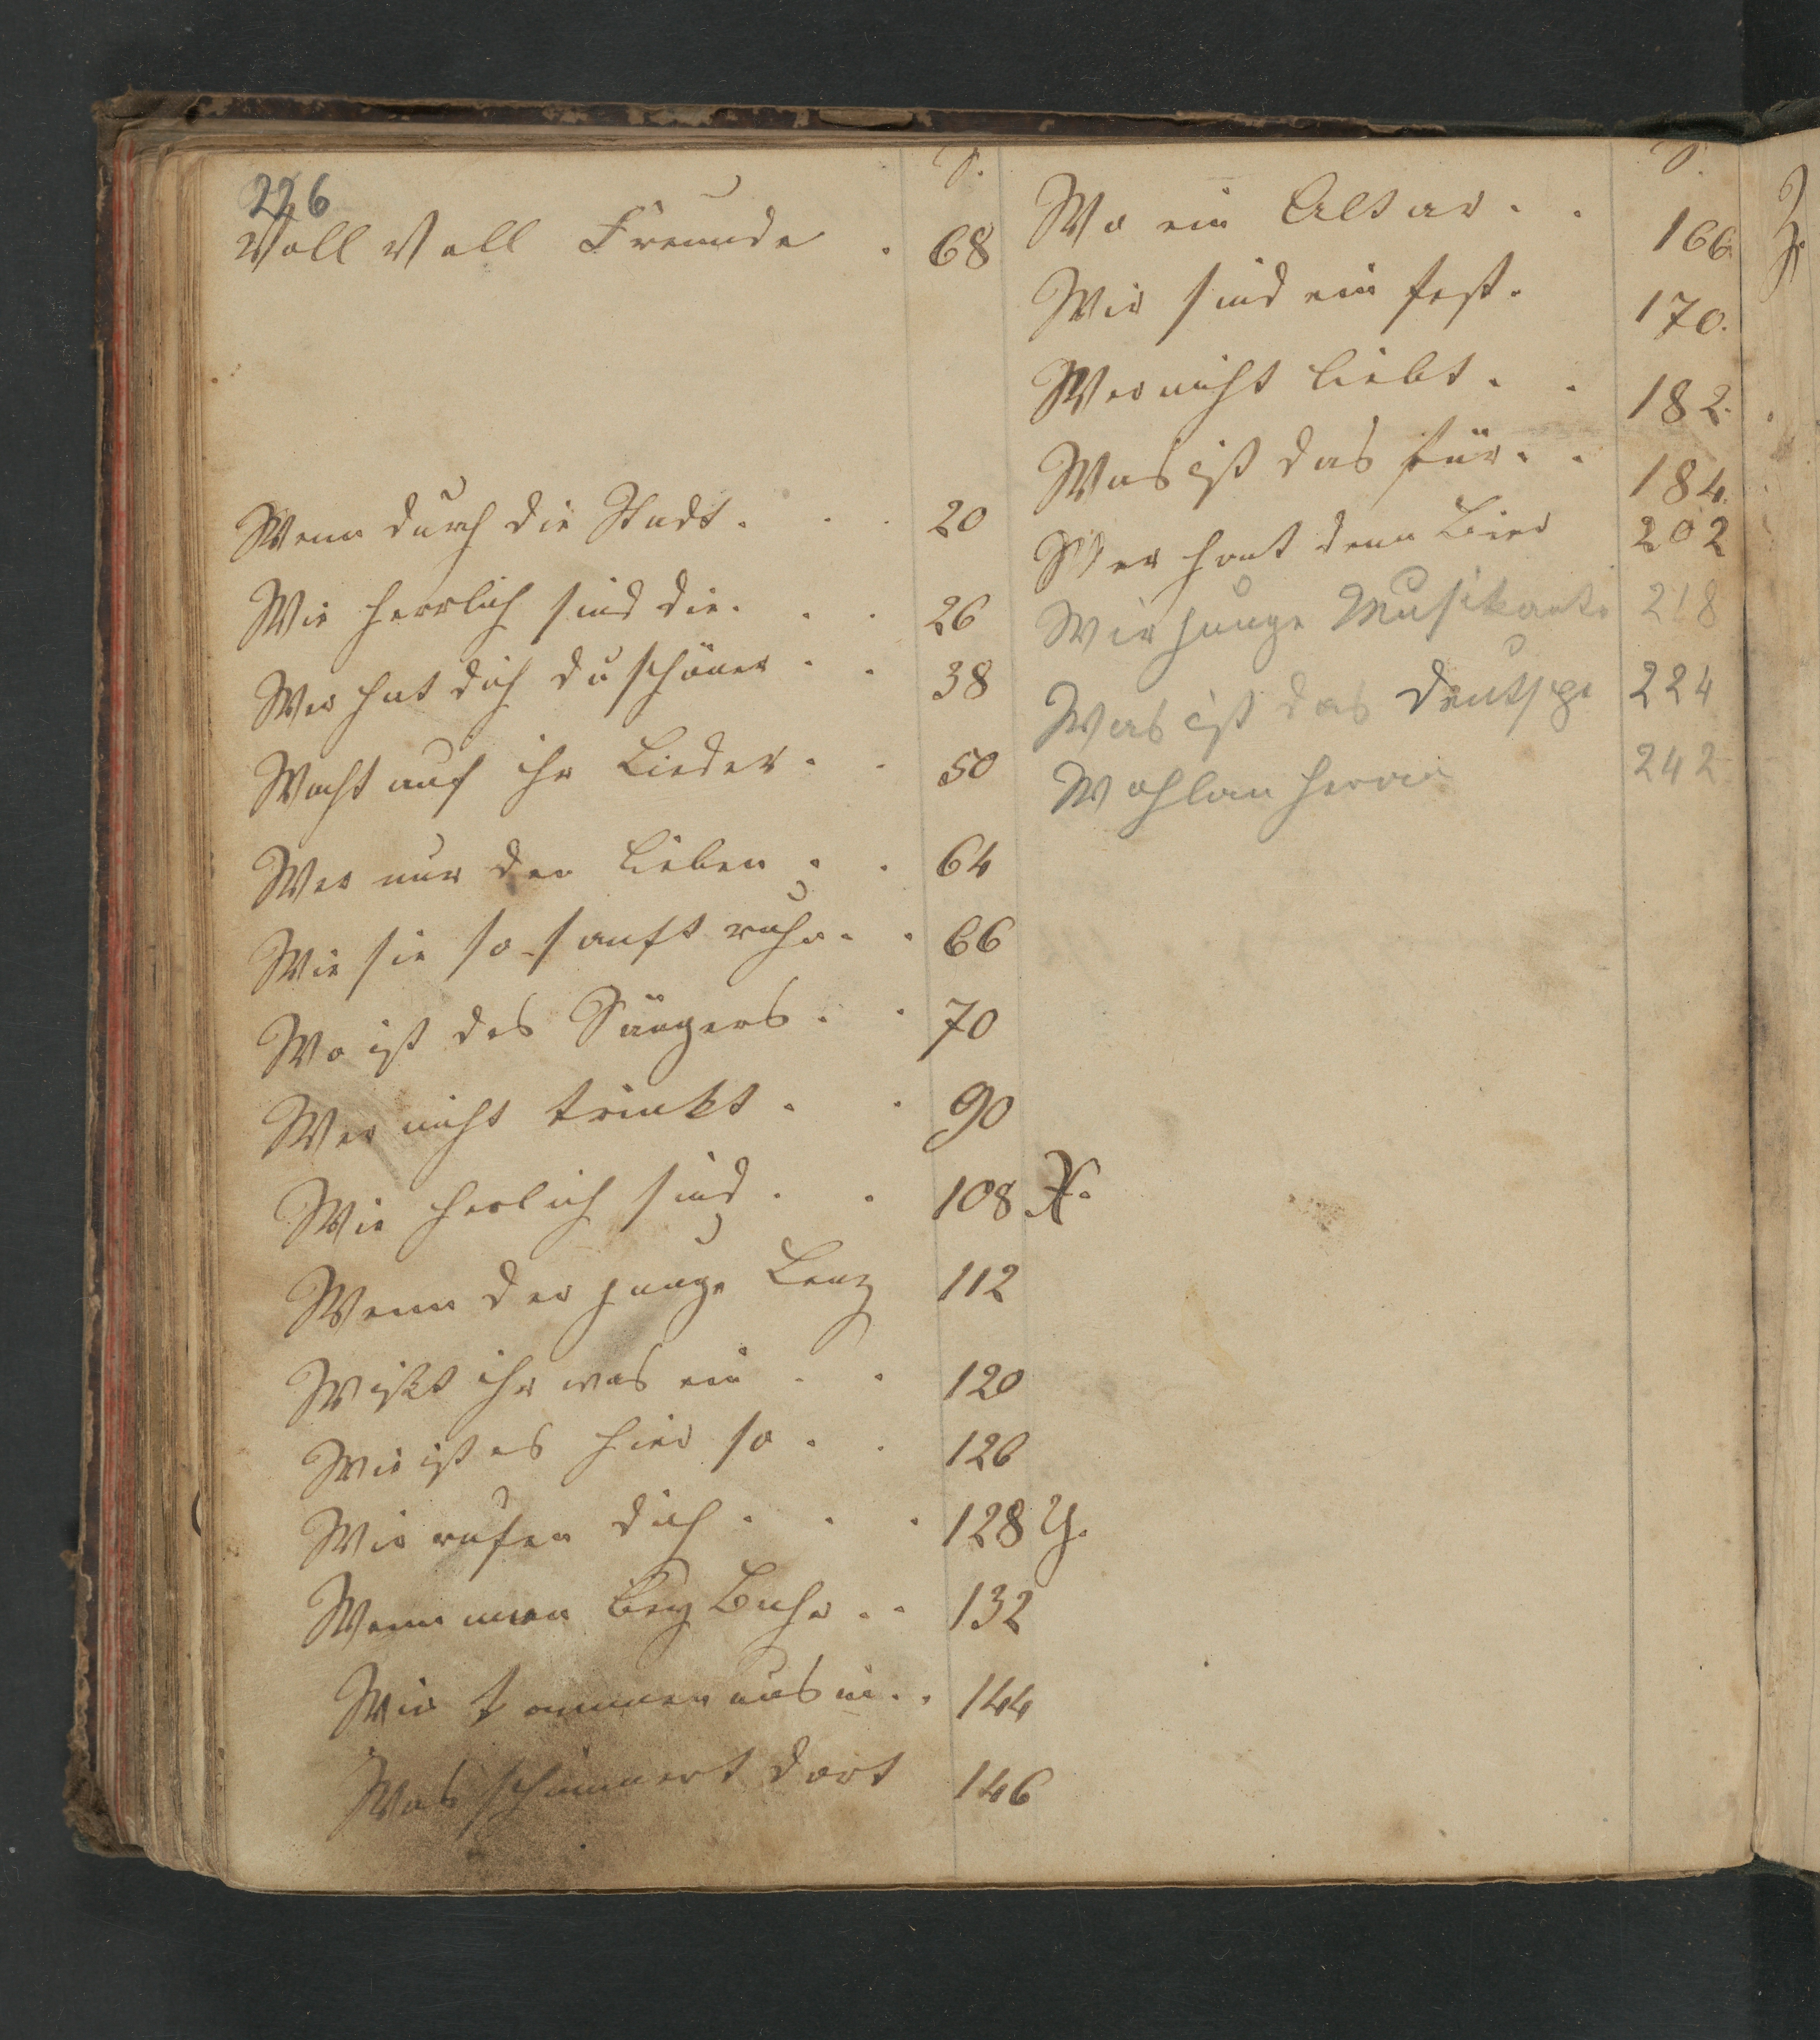 226
S.
Voll Voll Freunde . 68
Wenn durch die Stadt . . . 20
Wie herrlich sind die . . . 26
Wer hat dich du schöner . . 38
Wacht auf ihr Lieder . . 50
Wer nur den lieben . . 64
Wie sie so sanft ruhn . . 66
Wo ist des Sängers . . 70
Wer nicht trinkt . . 90
Wie herlich sind . . 108
Wenn der junge Lenz 112
Wißt ihr was ein . . 120
Wie ist es hier so . . 126
Wir rufen dich . . . 128
Wenn man bey . . 132
Wir kommen uns in . . 144
Was schimmert dort 146
S.
Wo ein Altar . . 166.
Wir sind ein fest . 170.
Wer nicht liebt . . 182.
Was ist das für . . 184.
Wer hat denn Bier 202
Wir junge Musikante 218
Was ist das deutsche 224
Wohlan herein 242
X.
Y.
Z.